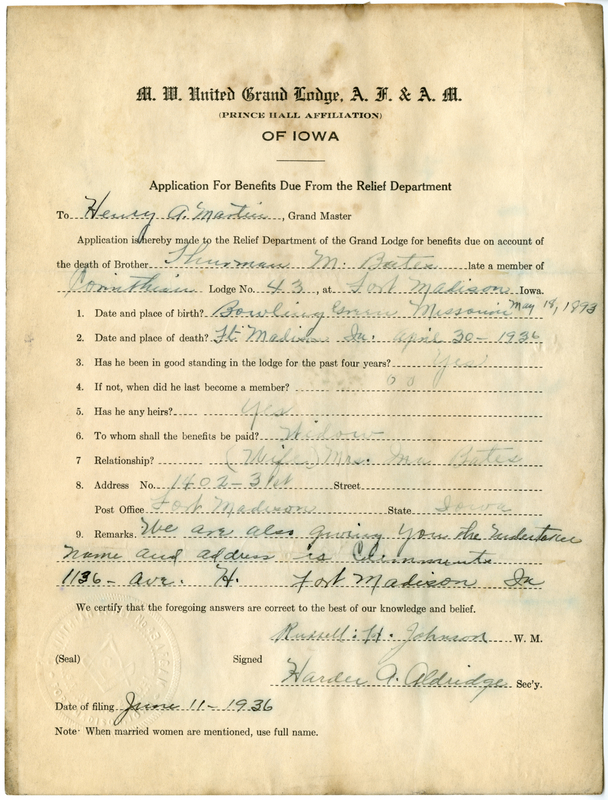 M. W. United Grand Lodge, A. F. & A. M.
(PRINCE HALL AFFILIATION)
OF IOWA
Application For Benefits Due From the Relief Department
To Henry A. Martin, Grand Master
Application is hereby made to the Relief Department of the Grand Lodge for benefits due on account of
the death of Brother Thurman M. Bates late a member of
Corinthian Lodge No. 43, at Fort Madison Iowa.
1. Date and place of birth? Bowling Green Missouri May 18, 1893
2. Date and place of death? Ft. Madison Ia. April 30 - 1936
3. Has he been in good standing in the lodge for the past four years? Yes
4. If not, when did he last become a member?
5. Has he any heirs? Yes
6. To whom shall the benefits be paid? Widow
7 Relationship? (Wife) Mrs. Bates
8. Address No. 1402 - 31st Street
Post Office Fort Madison State Iowa
9. Remarks. We are also giving you the Undertaker
name and address is
1136 - Ave. H. Fort Madison Ia
We certify that the foregoing answers are correct to the best of our knowledge and belief.
Russell H. Johnson W. M.
(Seal) Signed
Harder A. Aldridge Sec'y.
Date of filing June 11 - 1936
Note: When married women are mentioned, use full name.